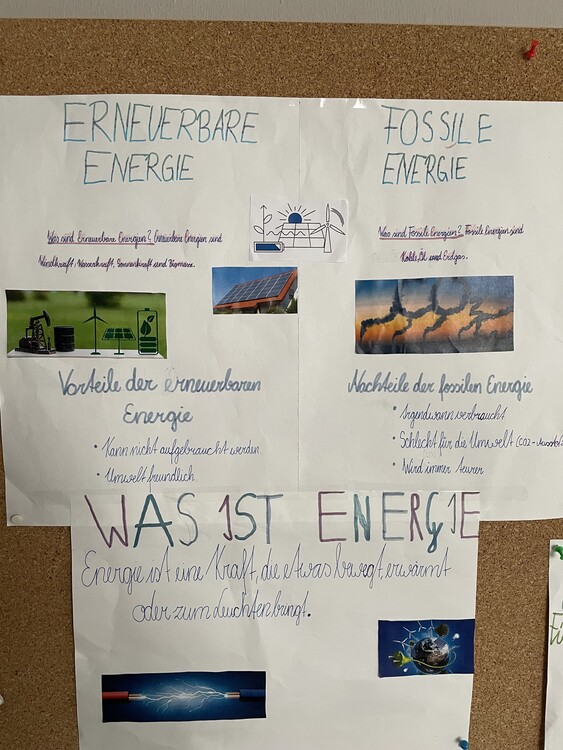 ERNEUERBARE
ENERGIE
Was sind Erneuerbare Energien? Erneuerbare Energien sind
Windkraft, Wasserkraft, Sonnenkraft und Biomasse.
Vorteile der erneuerbaren
Energie
• Kann nicht aufgebraucht werden
• Umwelt freundlich
FOSSILE
ENERGIE
Was sind Fossile Energien? Fossile Energien sind
Kohle, Öl und Erdgas.
Nachteile der fossilen Energie
• Irgendwann verbraucht
• Schlecht für die Umwelt (CO2-
• Wird immer teurer
WAS IST ENERGIE
Energie ist eine Kraft, die etwas bewegt, erwärmt
oder zum Leuchten bringt.